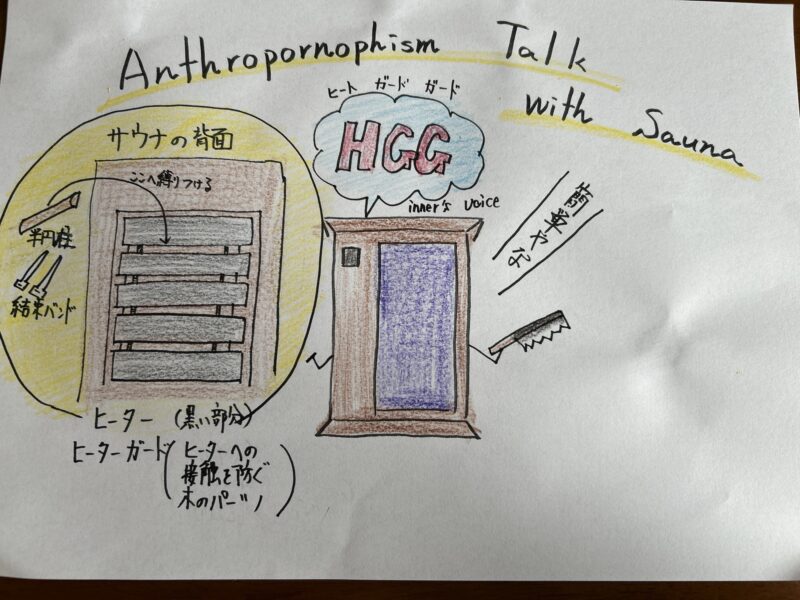 Anthropornophism Talk
with Sauna
ヒート ガード ガード
HGG
inner's voice
サウナの背面
ここへ縛りつける
半円柱
結束バンド
簡単やな
ヒーター (黒い部分)
ヒーターガード(ヒーターへの
接触を防ぐ
木のパーツ)